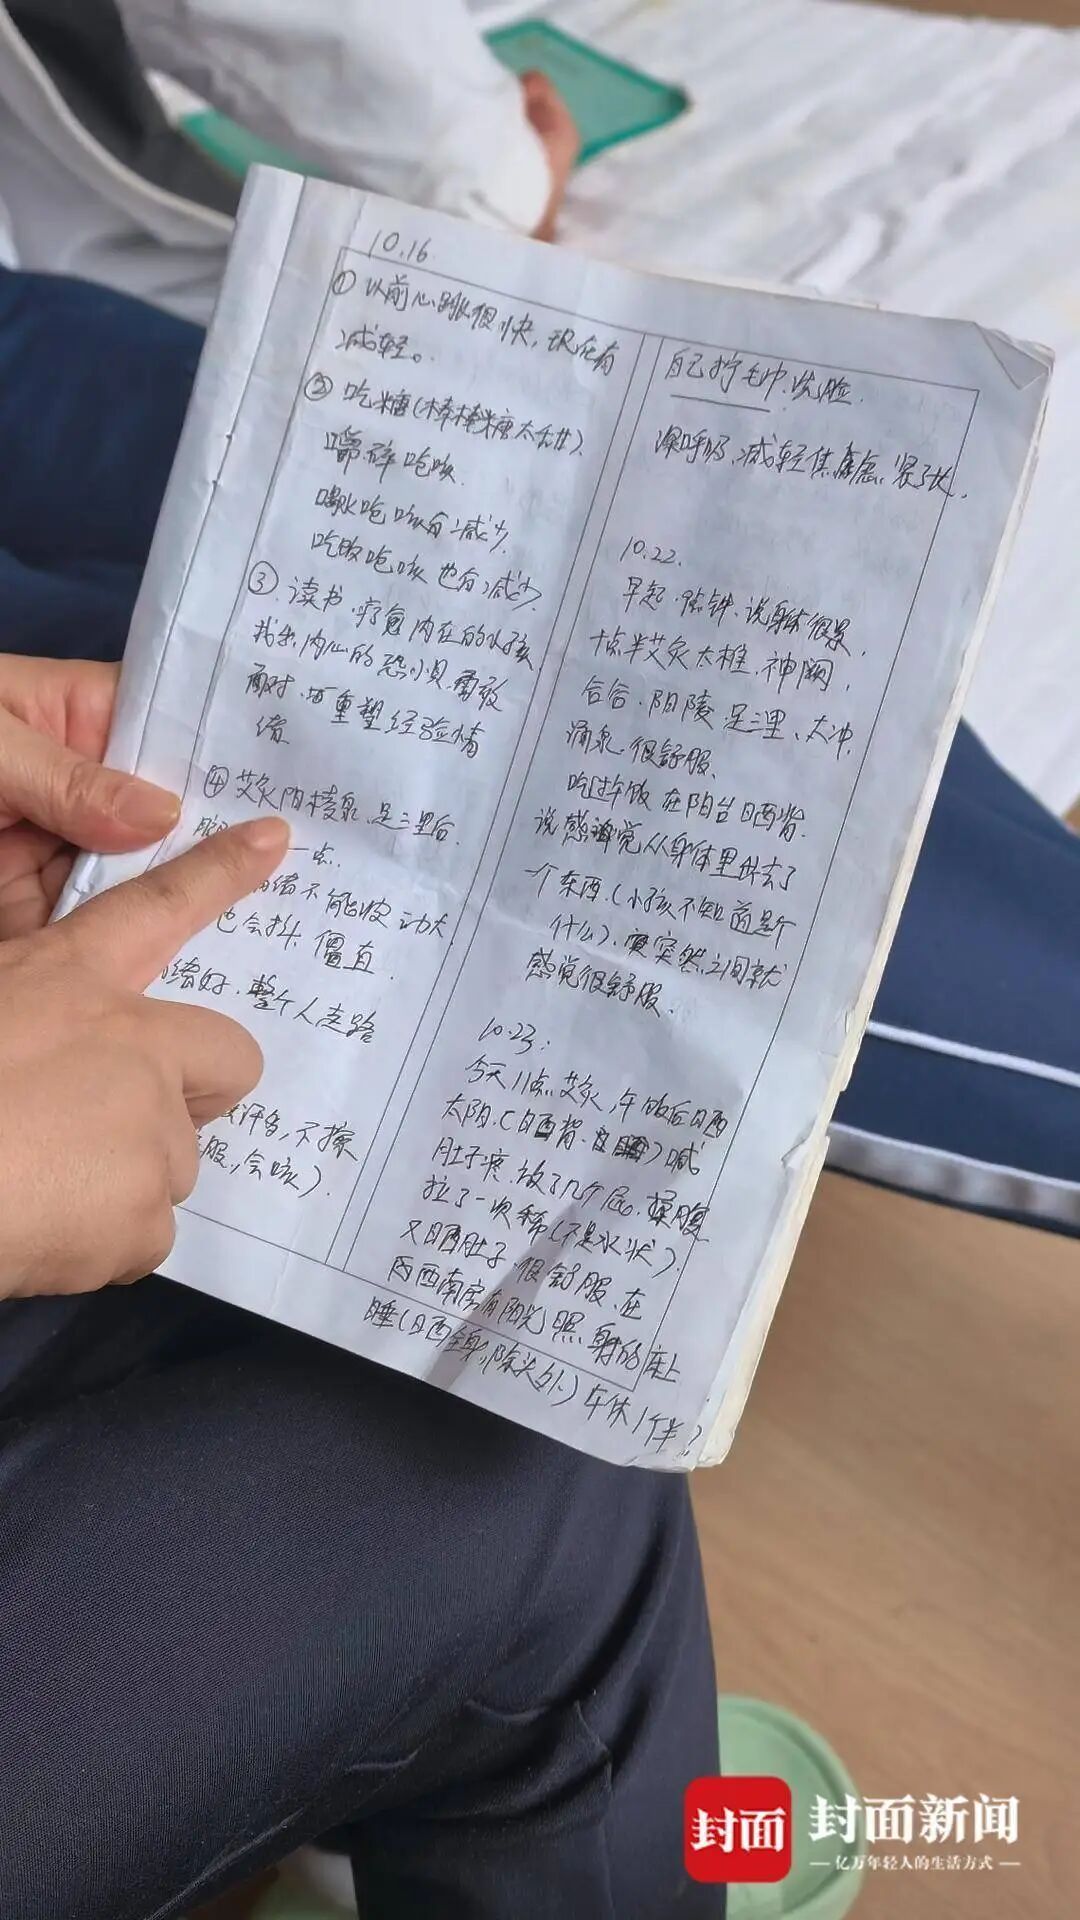 10.16.
① 以前心跳很快，现在有
减轻。
② 吃糖(棒棒糖太甜).
嚼碎呛咳.
喝水呛咳有减少.
吃饭呛咳也有减少.
③. 读书.疗愈内在的小孩
找出内心的恐惧.勇敢
面对.重塑经验情
绪
④ 艾灸阴陵泉.足三里后.
一点.
绪不能波动大.
也会抖.僵直.
绪好.整个人走路
汗多,不擦
服,会咳).
自己拧毛巾.洗脸.
深呼吸.减轻焦虑.紧张.
10.22.
早起.9点钟.说身体很累.
十点半艾灸大椎.神阙.
合谷.阴陵.足三里、太冲.
涌泉.很舒服.
吃过午饭在阳台晒背.
说感觉从身体里出去了
一个东西.(小孩不知道是个
什么).突然之间就
感觉很舒服.
10.23:
今天11点.艾灸,午饭后晒
太阳.(晒背.)喊
肚子疼.放了几个屁.揉腹
拉了一次稀(不是水状).
又晒肚子.很舒服.在
西南房有阳光照射的床上
睡(晒全身,除头外.)午休1个半
封面
封面新闻
亿万年轻人的生活方式